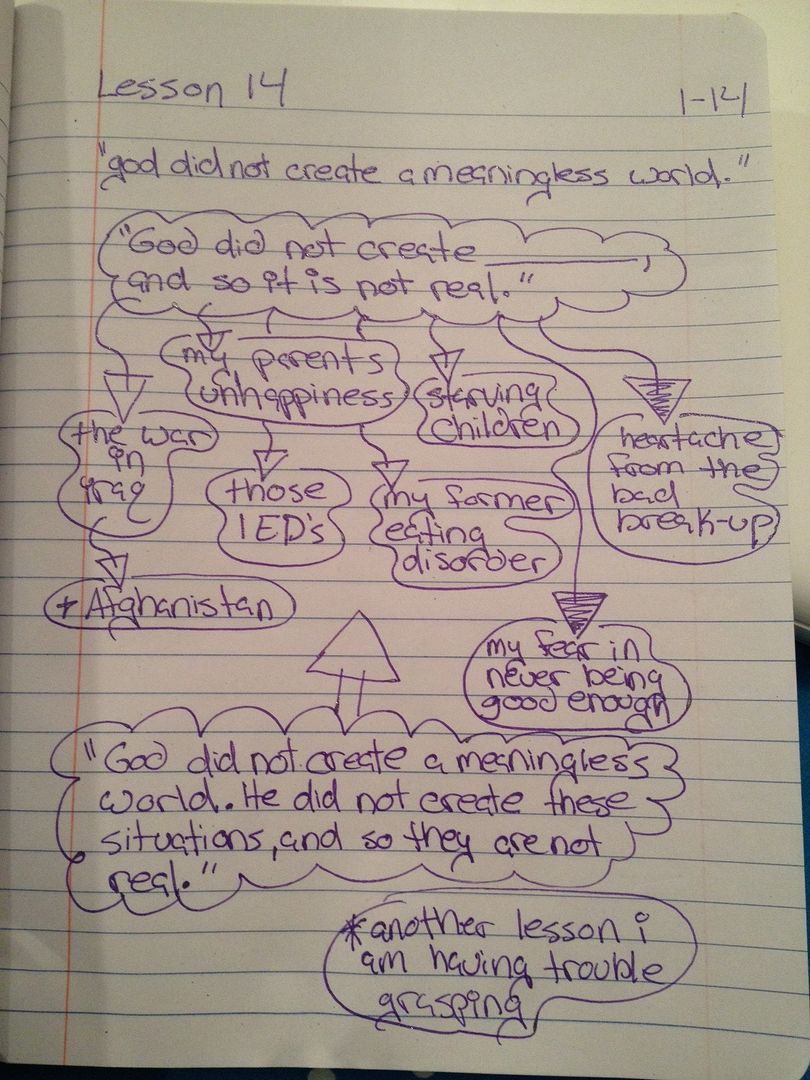 Lesson 14
1-14
"god did not create a meaningless world."
"God did not create ________,
and so it is not real."
my parents
unhappiness
starving
children
the war
in
iraq
those
IED's
my former
eating
disorder
heartache
from the
bad
break-up
+ Afghanistan
my fear in
never being
good enough
"God did not create a meaningless
world. He did not create these
situations, and so they are not
real."
*another lesson i
am having trouble
grasping